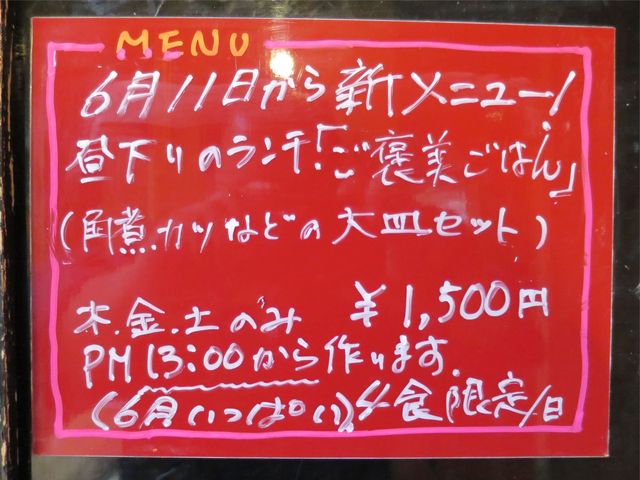 MENU
6月11日から新メニュー!
昼下りのランチ「ご褒美ごはん」
(角煮.カツなどの大皿セット)
木.金.土のみ ¥1,500円
PM13:00から作ります.
(6月いっぱい)4食限定/日